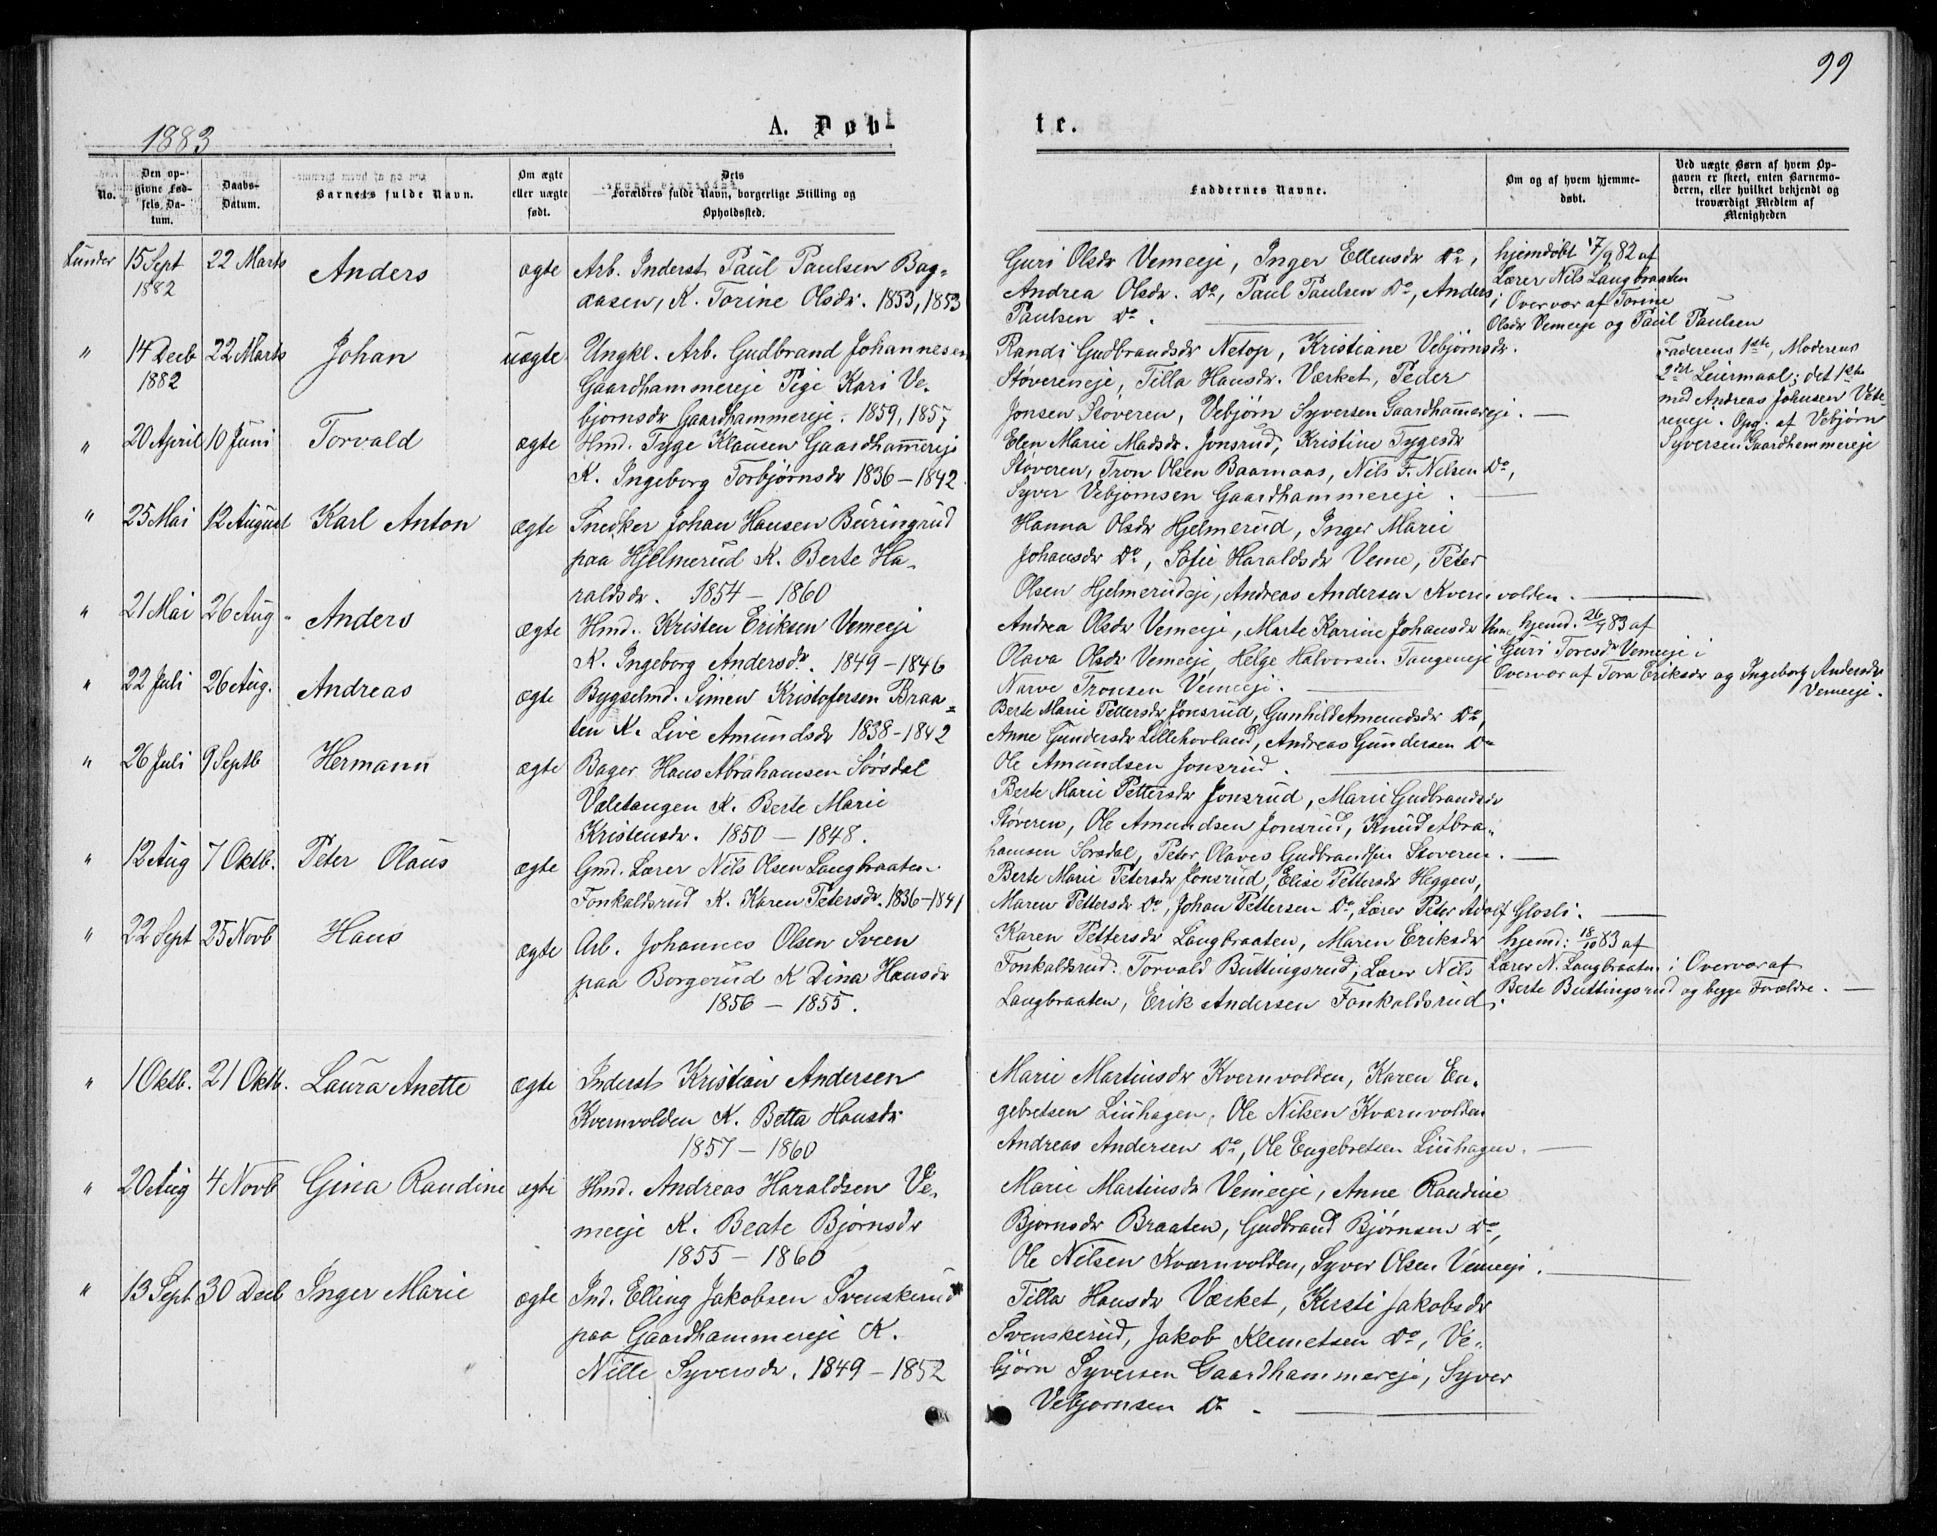 99
1883
A. Døb-
te.
No.
Den op-
givne Fød-
sels Da-
tum.
Daabs-
Datum.
Barnets fulde Navn.
Om ægte
eller uægte
født.
Dets
Forældres fulde Navn, borgerlige Stilling og
Opholdssted.
Faddernes Navne.
Om og af hvem hjemme-
døbt.
Ved uægte Børn af hvem Op-
gaven er skeet, enten Barnemo-
deren, eller hvilket bekjendt og
troværdigt Medlem af
Menigheden
Lunder 15 Sept 1882 22 Marts Anders ægte
Arb. Inderst Paul Paulsen Bag-
aasen, K. Torine Olsdr. 1853, 1853
Guri Olsdr Vemeeje, Inger Ellensdr Do,
Andrea Olsdr. Do, Paul Paulsen Do, Anders
Paulsen Do.
hjemdøbt 17/9 82 af
Lærer Nils Langbraaten
i Overvær af Torine
Olsdr Vemeeje og Paul Paulsen
" 14 Decb 1882 22 Marts Johan uægte
Ungkl. Arb. Gudbrand Johannesen
Gaardhammereje Pige Kari Ve-
bjørnsdr Gaardhammereje. 1859, 1857
Randi Gudbrandsdr Netop, Kristiane Vebjørnsdr.
Støvereneje, Tilla Hansdr. Værket, Peder
Jonsen Støveren, Vebjørn Syversen Gaardhammereje. —
Faderens 1ste, Moderens
2det Leiermaal; det 1ste
med Andreas Johnsen Vete-
reneje. Opg. af Vebjørn
Syversen Gaardhammereje
" 20 April 10 Juni Torvald ægte
Hmd. Tyge Klausen Gaardhammereje
K. Ingeborg Torbjørnsdr 1836 – 1842.
Elen Marie Madsdr. Jonsrud, Kristine Tygesdr
Støveren, Tron Olsen Baarnaas, Nils F. Nilsen Do,
Syver Vebjørnsen Gaardhammereje. —
" 25 Mai 12 August Karl Anton ægte
Snedker Johan Hansen Buringrud
paa Hjelmerud K. Berte Ha-
raldsdr. 1854 – 1860
Hanna Olsdr Hjelmerud, Inger Marie
Johansdr Do, Sofie Haraldsdr Veme, Peter
Olsen Hjelmerudeje, Andreas Andersen Kvernvolden. —
" 21 Mai 26 Aug. Anders ægte
Hmd. Kristen Eriksen Vemeeje
K. Ingeborg Andersdr. 1849 – 1846
Andrea Olsdr Vemeeje, Marte Karine Johansdr Veme
Olava Olsdr Vemeeje, Helge Halvorsen Tangeneje
Narve Tronsen Vemeeje. —
hjemd. 26/7 83 af
Guri Toresdr Vemeeje i
Overvær af Tora Eriksdr og Ingeborg Andersdr
Vemeeje.
" 22 Juli 26 Aug. Andreas ægte
Bygselmd. Simen Kristofersen Braa-
ten K. Live Amundsdr 1838 – 1842
Berte Marie Pettersdr Jonsrud, Gunhild Amundsdr Do,
Anne Gundersdr Lillehovland, Andreas Gundersen Do
Ole Amundsen Jonsrud. —
" 26 Juli 9 Septb Hermann ægte
Bager Hans Abrahamsen Sørsdal
Væletangen K. Berte Marie
Kristensdr. 1850 – 1848.
Berte Marie Pettersdr Jonsrud, Marie Gudbrandsdr
Støveren, Ole Amundsen Jonsrud, Knud Abra-
hamsen Sørsdal, Peter Olaves Gudbrandsen Støveren. —
" 12 Aug 7 Oktb. Peter Olaus ægte
Gmd. Lærer Nils Olsen Langbraaten
Fonkaldsrud K. Karen Petersdr. 1836 – 1841
Berte Marie Petersdr Jonsrud, Elise Pettersdr Heggen,
Maren Pettersdr Do, Johan Pettersen Do, Lærer Peter Adolf Glosli. —
" 22 Sept 25 Novb Hans ægte
Arb. Johannes Olsen Sveen
paa Borgerud K Dina Hansdr
1856 – 1855.
Karen Pettersdr Langbraaten, Maren Eriksdr
Fonkaldsrud. Torvald Buttingsrud, Lærer Nils
Langbraaten, Erik Andersen Fonkaldsrud.
hjemd: 18/10 83 af
Lærer N. Langbraaten i Overvær af
Berte Buttingsrud og begge Forældre. —
" 1 Oktb. 21 Oktb. Laura Anette ægte
Inderst Kristian Andersen
Kvernvolden K. Betta Hansdr
1857 – 1860
Marie Martinsdr Kvernvolden, Karen En-
gebretsen Liuhagen, Ole Nilsen Kværnvolden
Andreas Andersen Do, Ole Engebretsen Liuhagen. —
" 20 Aug 4 Novb Gina Randine ægte
Hmd. Andreas Haraldsen Ve-
meeje K. Beate Bjørnsdr
1855 – 1860
Marie Martinsdr Vemeeje, Anne Randine
Bjørnsdr Braaten, Gudbrand Bjørnsen Do,
Ole Nilsen Kværnvolden, Syver Olsen Vemeeje. —
" 13 Sept 30 Decb Inger Marie ægte
Ind. Elling Jakobsen Svenskerud
paa Gaardhammereje K.
Nille Syversdr. 1849 – 1852
Tilla Hansdr Værket, Kirsti Jakobsdr
Svenskerud, Jakob Klemetsen Do, Ve-
bjørn Syversen Gaardhammereje, Syver
Vebjørnsen Do. —